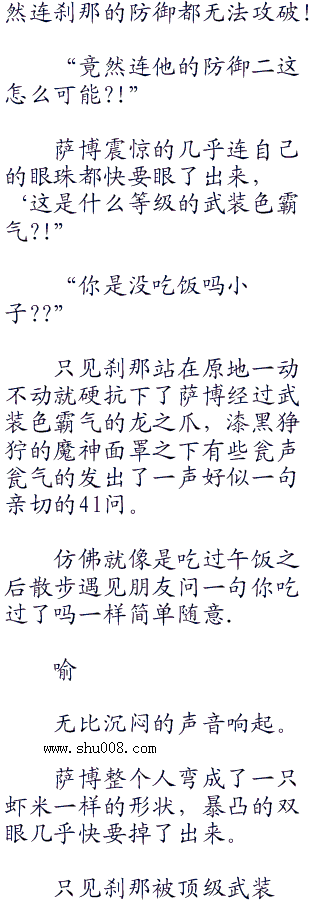 然连刹那的防御都无法攻破!
“竟然连他的防御二这
怎么可能?!”
萨博震惊的几乎连自己
的眼珠都快要眼了出来,
‘这是什么等级的武装色霸
气?!”
“你是没吃饭吗小
子??”
只见刹那站在原地一动
不动就硬抗下了萨博经过武
装色霸气的龙之爪，漆黑狰
狞的魔神面罩之下有些瓮声
瓮气的发出了一声好似一句
亲切的41问。
仿佛就像是吃过午饭之
后散步遇见朋友问一句你吃
过了吗一样简单随意.
喻
无比沉闷的声音响起。
www.shu008.com
萨博整个人弯成了一只
虾米一样的形状，暴凸的双
眼几乎快要掉了出来。
只见刹那被顶级武装